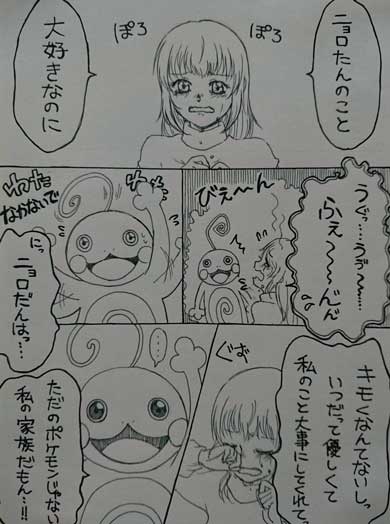 ニョロたんのこと
大好きなのに
ぽろ
ぽろ
うぐっ……うぅ〜……
ふぇ〜〜んん
びぇ〜ん
なかないで
にっ
ニョロだんはっ…
キモくなんてないしっ
いつだって優しくて
私のこと大事にしてくれて
ぐず
……
ただのポケモンじゃない
私の家族だもん…!!